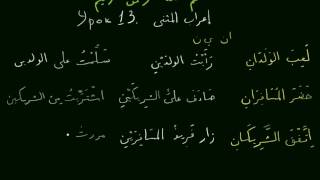 Урок 13. إعراب المثنى
انِ يْنِ
لَعِبَ الوَلَدَانِ رَأَيْتُ الوَلَدَيْنِ سَلَّمْتُ على الولدين
حَضَرَ المُسَافِرَانِ صَادَفَ عَلِيٌّ الشَّرِيكَيْنِ اشتريت من الشريكين
اِتَّفَقَ الشَّرِيكَانِ زار فريدٌ المسافِرَيْنِ مررت